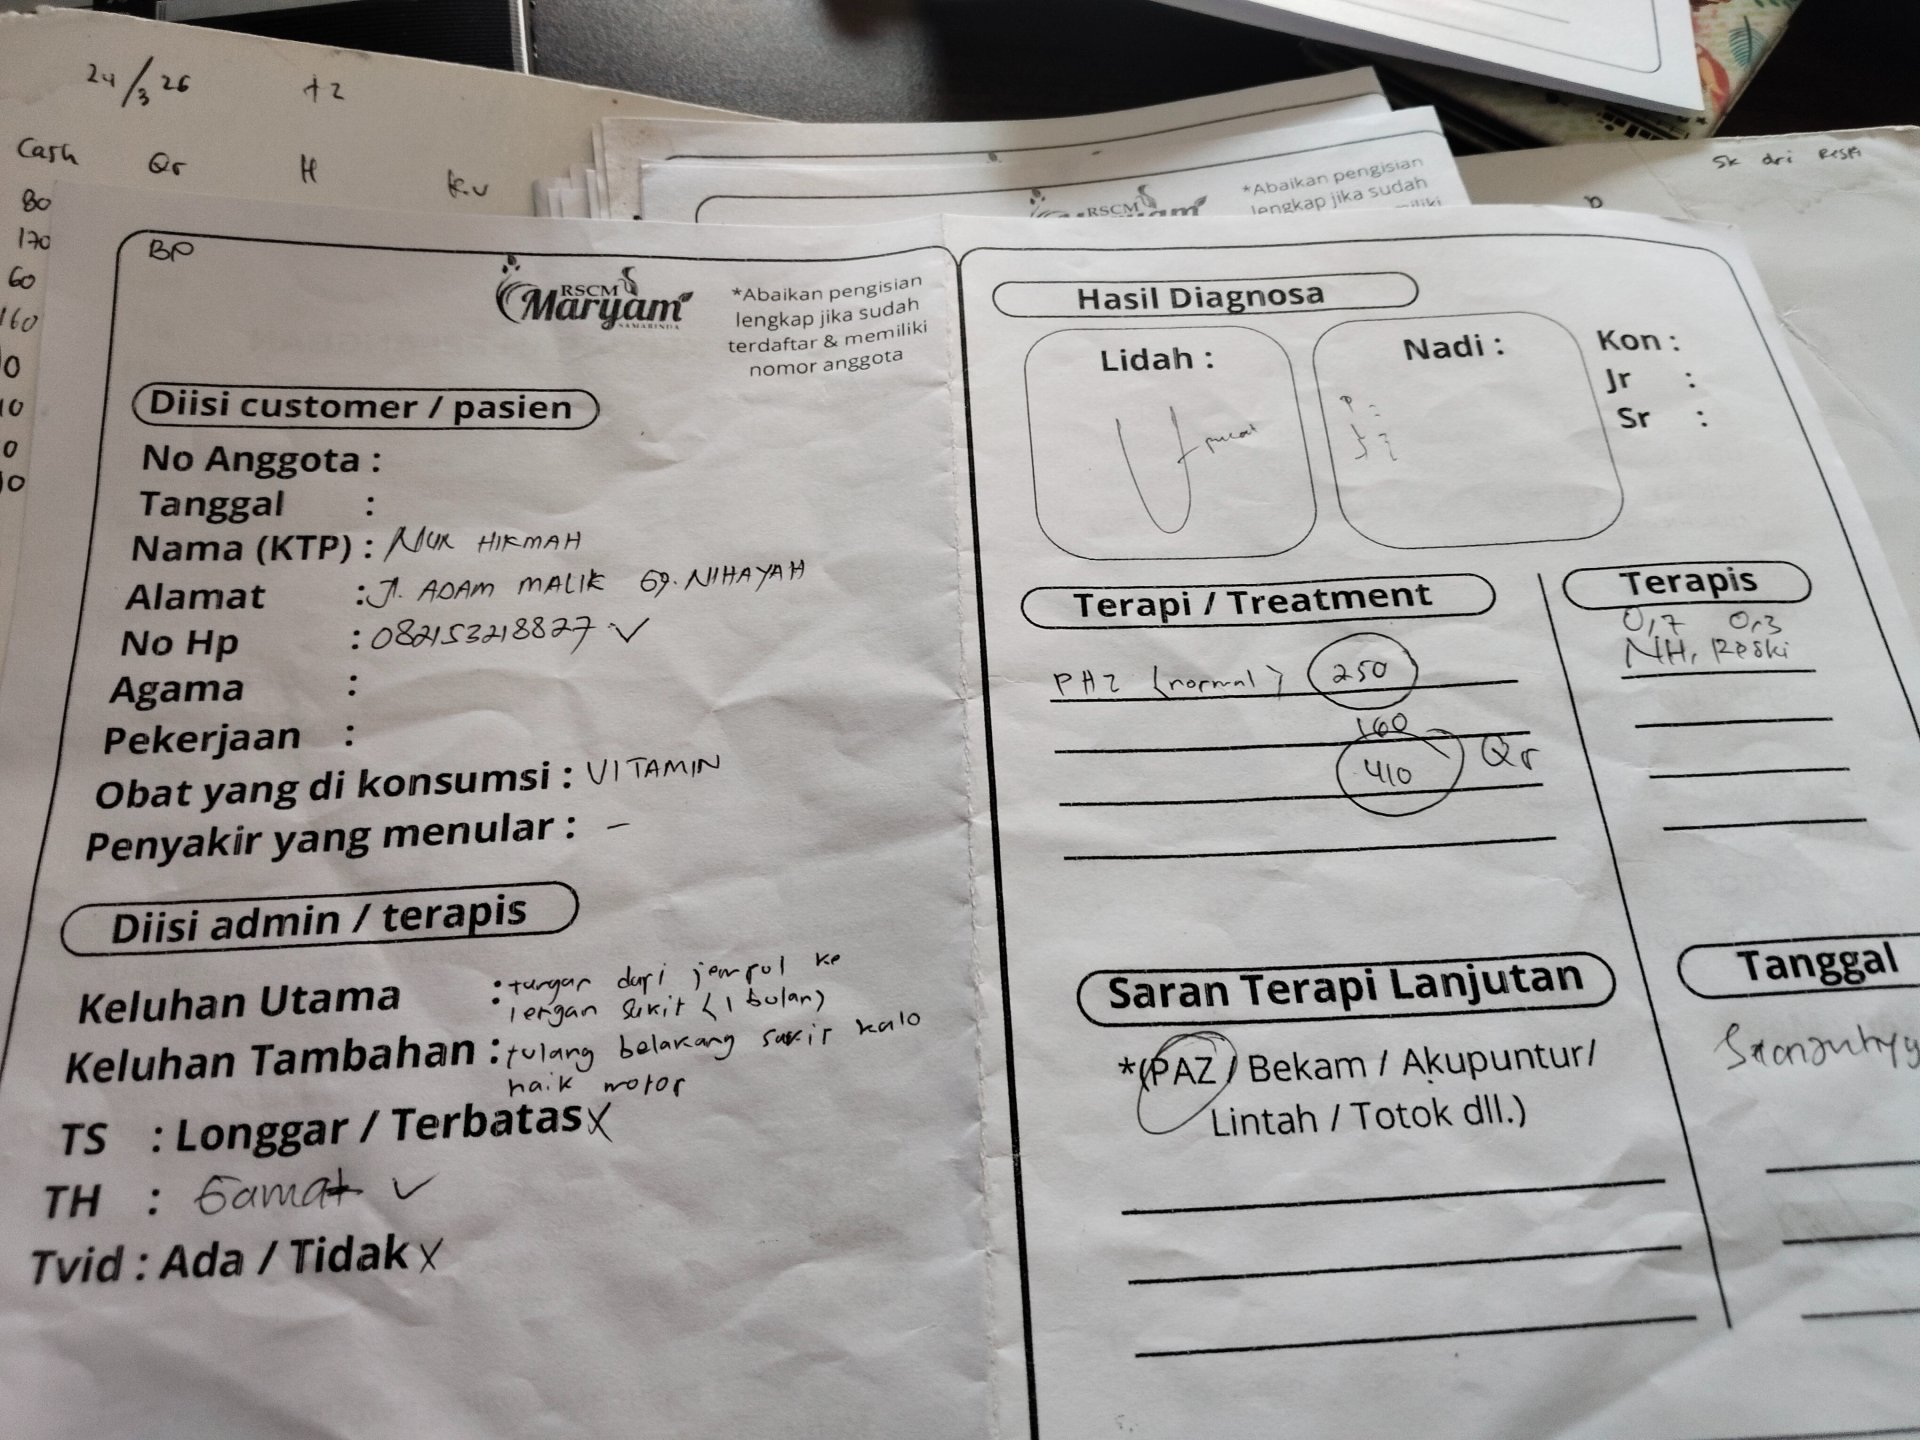 24/3 26
+2
Cash Qr H K.U
80
170
60
160
0
10
0
10
5k dri Reski
*Abaikan pengisian
lengkap jika sudah
RSCM
BP
RSCM
Maryam
SAMARINDA
*Abaikan pengisian
lengkap jika sudah
terdaftar & memiliki
nomor anggota
Diisi customer / pasien
No Anggota :
Tanggal :
Nama (KTP) : NUR HIKMAH
Alamat : Jl. ADAM MALIK Gg. NIHAYAH
No Hp : 082153218827 ✓
Agama :
Pekerjaan :
Obat yang di konsumsi : VITAMIN
Penyakir yang menular : -
Diisi admin / terapis
Keluhan Utama : tangan dari jempol ke
: lengan sakit (1 bulan)
Keluhan Tambahan : tulang belakang sakit kalo
naik motor
TS : Longgar / Terbatas X
TH : Gamat ✓
Tvid : Ada / Tidak X
Hasil Diagnosa
Lidah :
pucat
Nadi :
Kon :
Jr :
Sr :
Terapi / Treatment
PAZ (normal) 250
160
410 Qr
Terapis
0,7 0,3
NH, Reski
Saran Terapi Lanjutan
*(PAZ / Bekam / Akupuntur/
Lintah / Totok dll.)
Tanggal